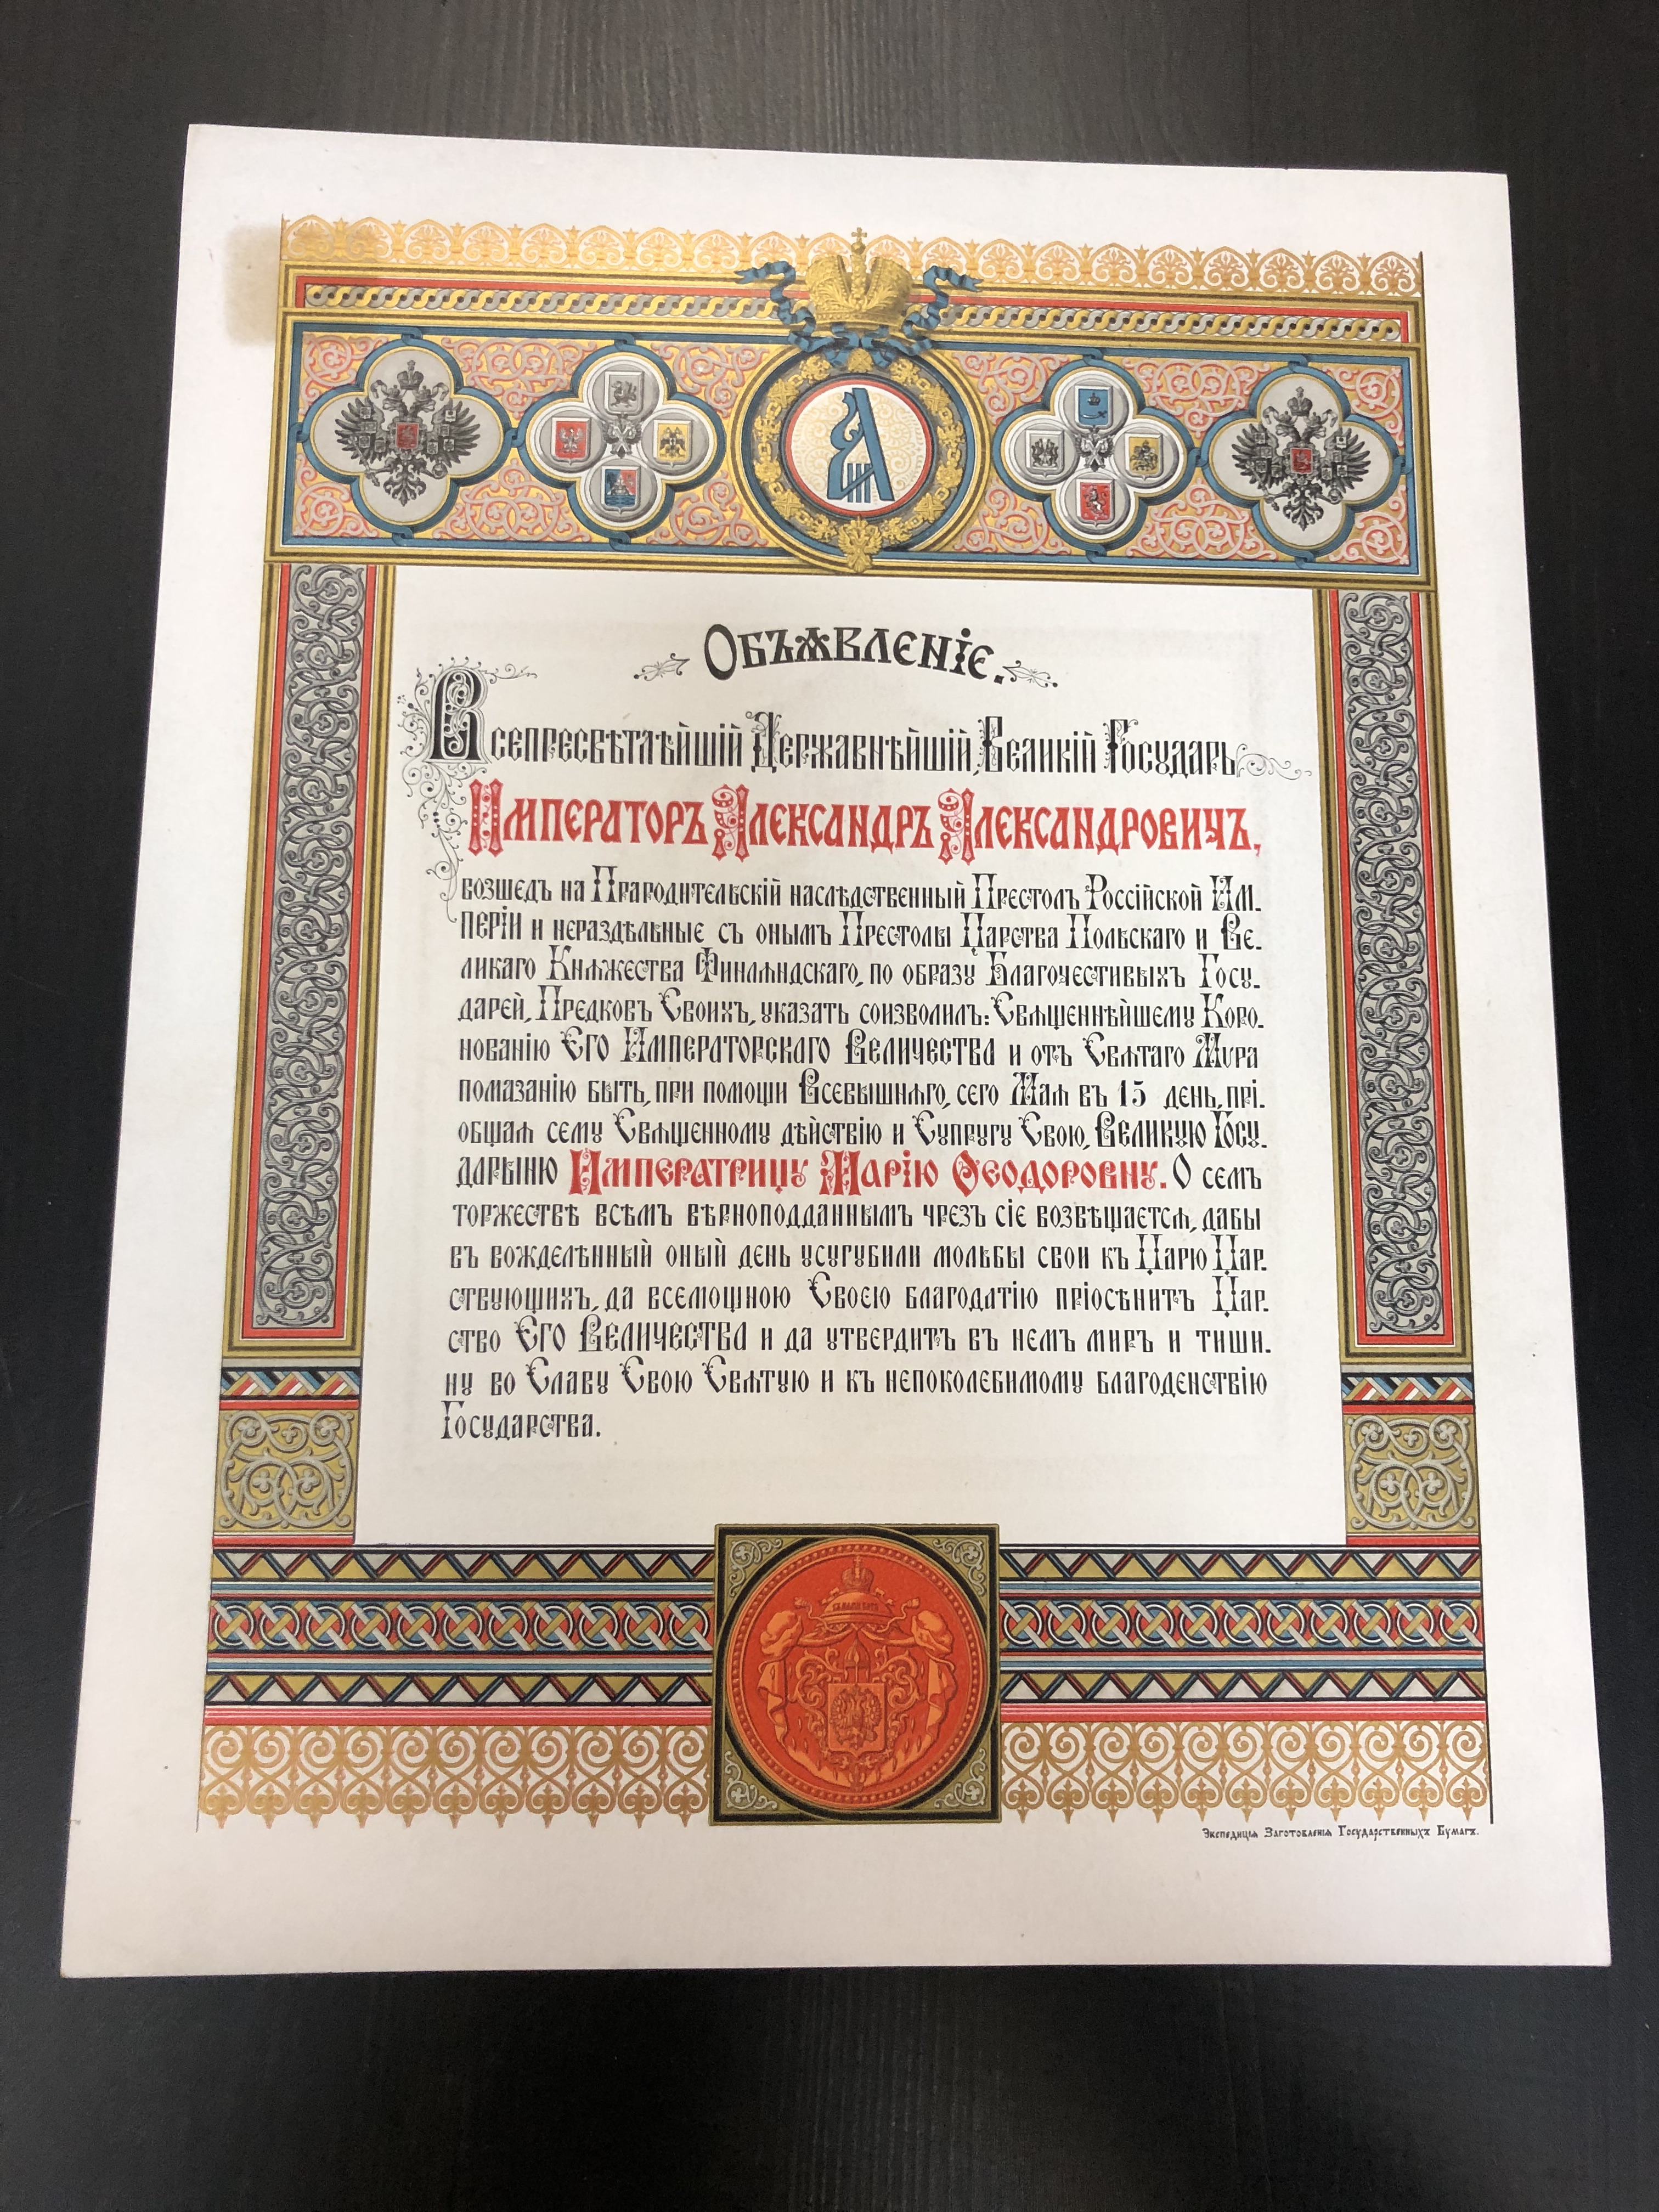 Объѧвленіе.
Всепресвѣтлѣйшій, Державнѣйшій, Великій Государь
Императоръ Александръ Александровичъ,
возшедъ на Прародительскій наслѣдственный Престолъ Россійской Им-
періи и нераздѣльные съ онымъ Престолы Царства Польскаго и Ве-
ликаго Кнѧжества Финлѧндскаго, по образу Благочестивыхъ Госу-
дарей, Предковъ Своихъ, указать соизволилъ: Свѧщеннѣйшему Коро-
нованію Его Императорскаго Величества и отъ Свѧтаго Мѵра
помазанію быть, при помощи Всевышнѧго, сего Маѧ въ 15 день, прі-
общаѧ сему Свѧщенному дѣйствію и Супругу Свою, Великую Госу-
дарыню Императрицу Марію Ѳеодоровну. О семъ
торжествѣ всѣмъ вѣрноподданнымъ чрезъ сіе возвѣщаетсѧ, дабы
въ вожделѣнный оный день усугубили мольбы свои къ Царю Цар-
ствующихъ, да всемощною Своею благодатію пріосѣнитъ Цар-
ство Его Величества и да утвердитъ въ немъ миръ и тиши-
ну во Славу Свою Свѧтую и къ непоколебимому благоденствію
Государства.
Экспедиціѧ Заготовленіѧ Государственныхъ Бумагъ.